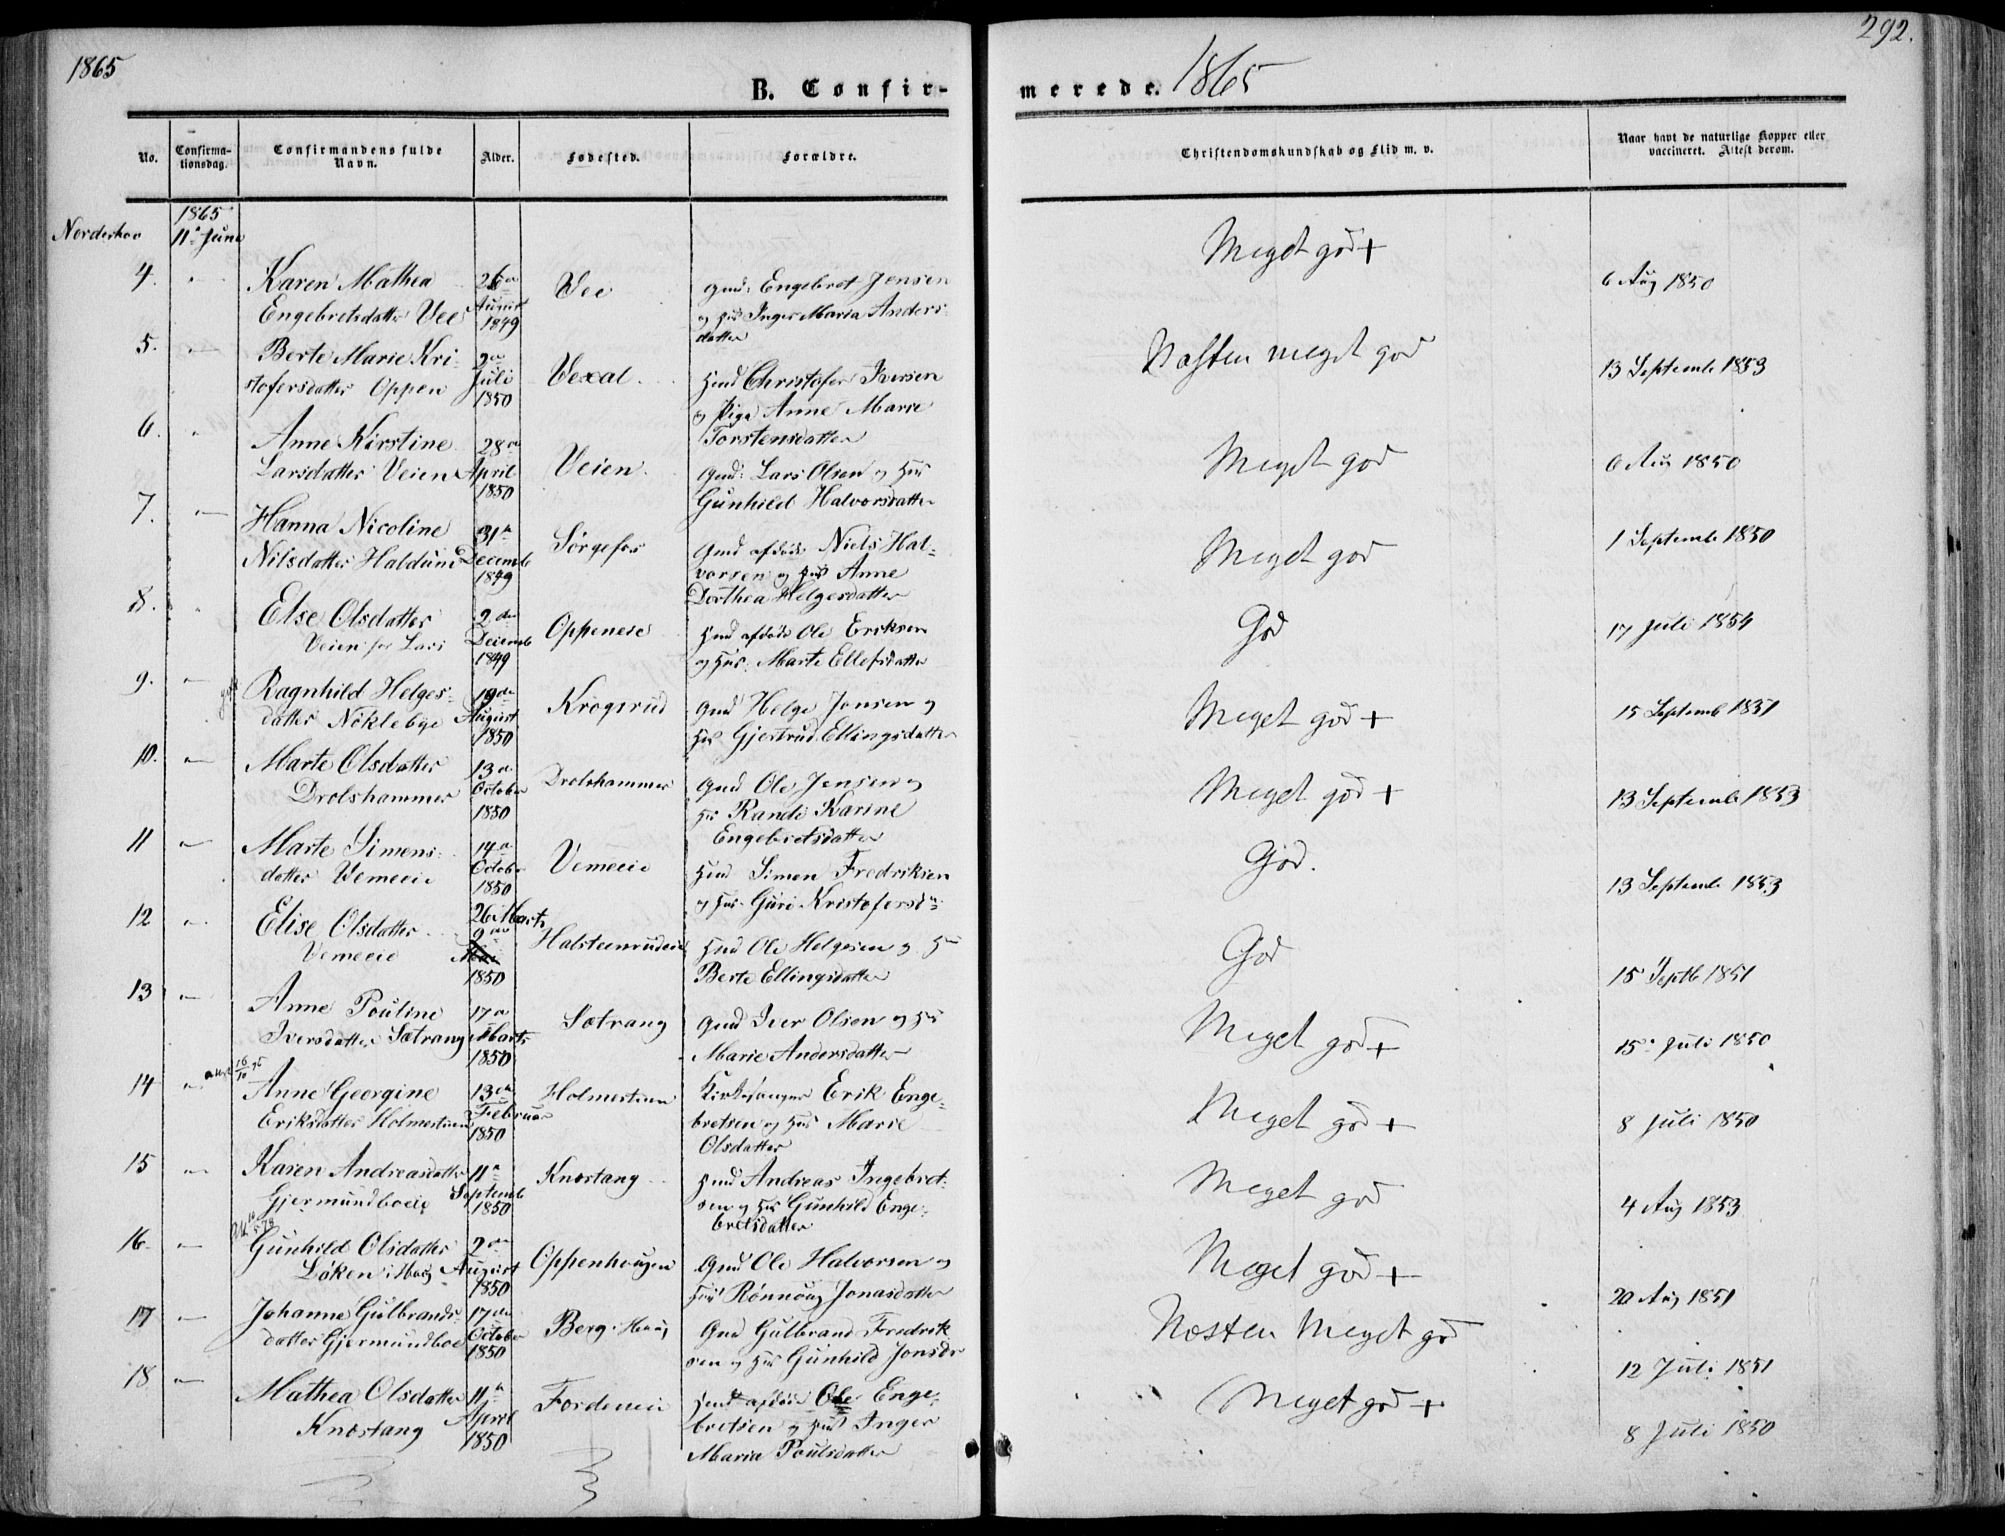 1865
292.
B. Confir-
merede. 1865
No.
Confirma-
tionsdag.
Confirmandens fulde
Navn.
Alder.
Fødested.
Forældre.
Christendomskundskab og Flid m. v.
Naar havt de naturlige Kopper eller
vaccineret. Attest derom.
Norderhov
1865
11te Juni
4. " Karen Mathea
Engebretsdatter Vee
26de
August
1849
Vee
Gmd: Engebret Jensen
og Hus Inger Maria Anders-
datter
Meget god +
6 Aug 1850
5. " Berte Marie Kri-
stofersdatter Oppen
2de
Juli
1850
Vexal
Hmd Christofer Iversen
og Pige Anne Marie
Torstensdatter
Næsten meget god
13 Septembr 1853
6. " Anne Kirstine
Larsdatter Veien
28de
April
1850
Veien
Gmd: Lars Olsen og Hus
Gunhild Halvorsdatter
Meget god
6 Aug 1850
7. " Hanna Nicoline
Nilsdatter Haldum
31te
Decemb
1849
Sørgefos
Gmd afdøde Niels Hal-
vorsen og Hus Anne
Dorthea Helgesdatter
Meget god
1 Septembr 1850
8. " Else Olsdatter
Veien for Lars
2den
Decemb
1849
Oppeneie
Hmd afdøde Ole Eriksen
og Hus. Marte Ellefsdatter
God
17 Juli 1854
9. " Ragnhild Helges-
datter Nøklebye
19de
August
1850
Krogsrud
Gmd Helge Jonsen og
Hus Gjertrud Ellingsdatter
Meget god +
15 Septemb 1851
10. " Marte Olsdatter
Drolshammer
13de
October
1850
Drolshammer
Gmd Ole Jensen og
Hus Randi Karine
Engebretsdatter
Meget god +
13 Septemb 1853
11 " Marte Simens-
datter Vemeeie
14de
Octobr
1850
Vemeeie
Hmd Simen Fredriksen
og Hus Guri Kristofersd:
God.
13 Septembr 1853
12 " Elise Olsdatter
Vemeeie
26 Marts
9de
Mai
1850
Halsteenrudeie
Hmd Ole Helgesen og Hus
Berte Ellingsdatter
God
15 Septb 1851
13 " Anne Pouline
Iversdatter Sætrang
17de
Marts
1850
Sætrang
Gmd Iver Olsen og Hus
Marie Andersdatter
Meget god +
15de Juli 1850
14 " Anne Georgine
Eriksdatter Holmestien
13de
Februar
1850
Holmestien
Kirkesanger Erik Enge-
bretsen og Hus Marie
Olsdatter
Meget god +
8 Juli 1850
15 " Karen Andreasdatter
Gjermundboeie
11te
Septemb
1850
Knæstang
Hmd Andreas Ingebret-
sen og Hus Gunhild Enge-
bretsdatter
Meget god
4 Aug 1853
16. " Gunhild Olsdatter
Løken i Haug
2den
August
1850
Oppenhougen
Gmd Ole Halvorsen og
Hus Rønnoug Jonasdatter
Meget god +
20 Aug 1851
17 " Johanne Gulbrands-
datter Gjermundboe
17de
October
1850
Berg i Haug
Gmd Gulbrand Fredrik-
sen og Hus Gunhild Jonsdr
Næsten Meget god
12 Juli 1851
18 " Mathea Olsdatter
Knæstang
11te
April
1850
Fordeneie
Hmd afdøde Ole Enge-
bretsen og Hus Inger
Maria Poulsdatter
Meget god +
8 Juli 1850